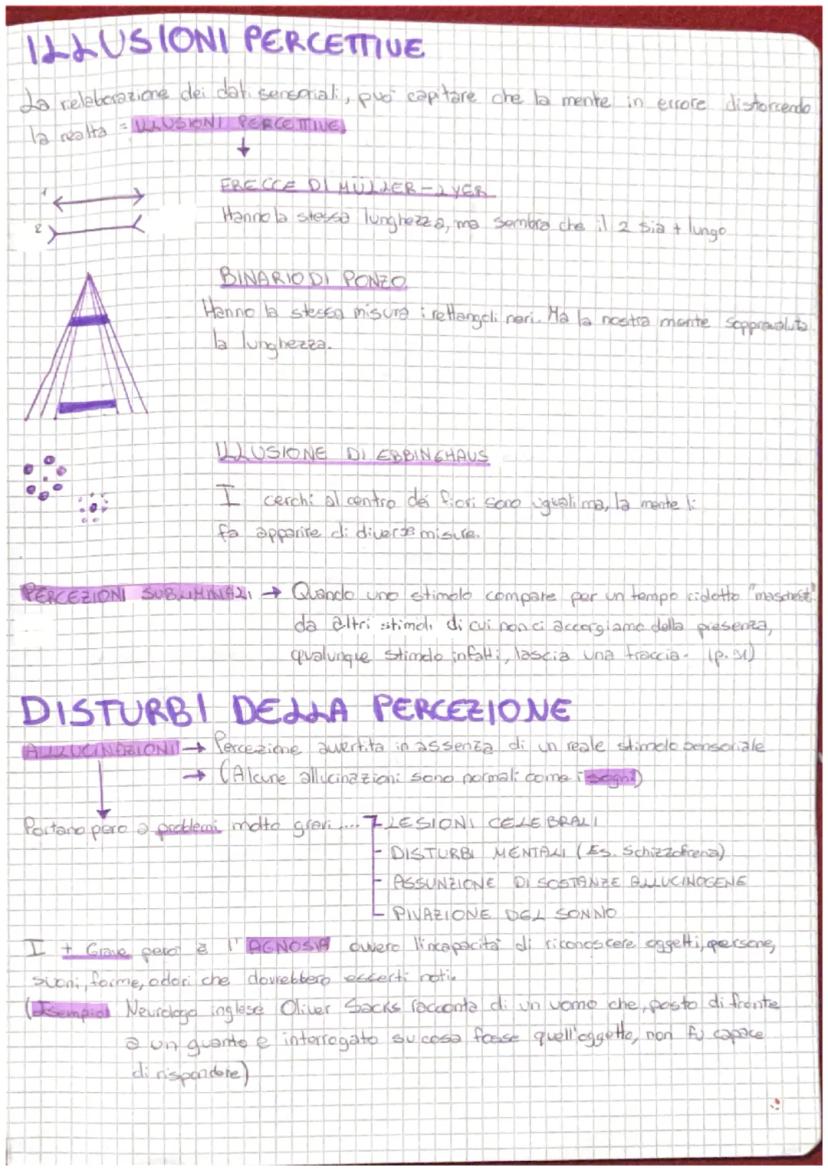 ILLUSIONI PERCETTIVE
La relaborazione dei dati sensoriali, può capitare che la mente in errore distorcendo
la realtà = ILLUSIONI PERCETTIVE
FRECCE DI MÜLLER-LYER
1
Hanno la stessa lunghezza, ma sembra che il 2 sia + lungo
2
BINARIO DI PONZO
Hanno la stessa misura i rettangoli neri. Ma la nostra mente sopravaluta
la lunghezza.
ILLUSIONE DI EBBINGHAUS
I cerchi al centro dei fiori sono uguali ma, la mente li
fa apparire di diverse misure.
PERCEZIONI SUBLIMINALI → Quando uno stimolo compare per un tempo ridotto
da altri stimoli di cui non ci accorgiamo della presenza,
qualunque stimolo infatti, lascia una traccia. (p.31)
DISTURBI DELLA PERCEZIONE
ALLUCINAZIONI → Percezione avvertita in assenza di un reale stimolo sensoriale
→ (Alcune allucinazioni sono normali come i sogni)
Portano però a problemi molto gravi... LESIONI CELEBRALI
- DISTURBI MENTALI (Es. Schizzofrenia)
- ASSUNZIONE DI SOSTANZE ALLUCINOGENE
- PIVAZIONE DEL SONNO
I + Grave però è l'AGNOSIA ovvero l'incapacità di riconoscere oggetti, persone,
suoni, forme, odori che dovrebbero esserti noti.
(Esempio Neurologo inglese Oliver Sacks racconta di un uomo che, posto di fronte
a un guanto e interrogato su cosa fosse quell'oggetto, non fu capace
di rispondere)